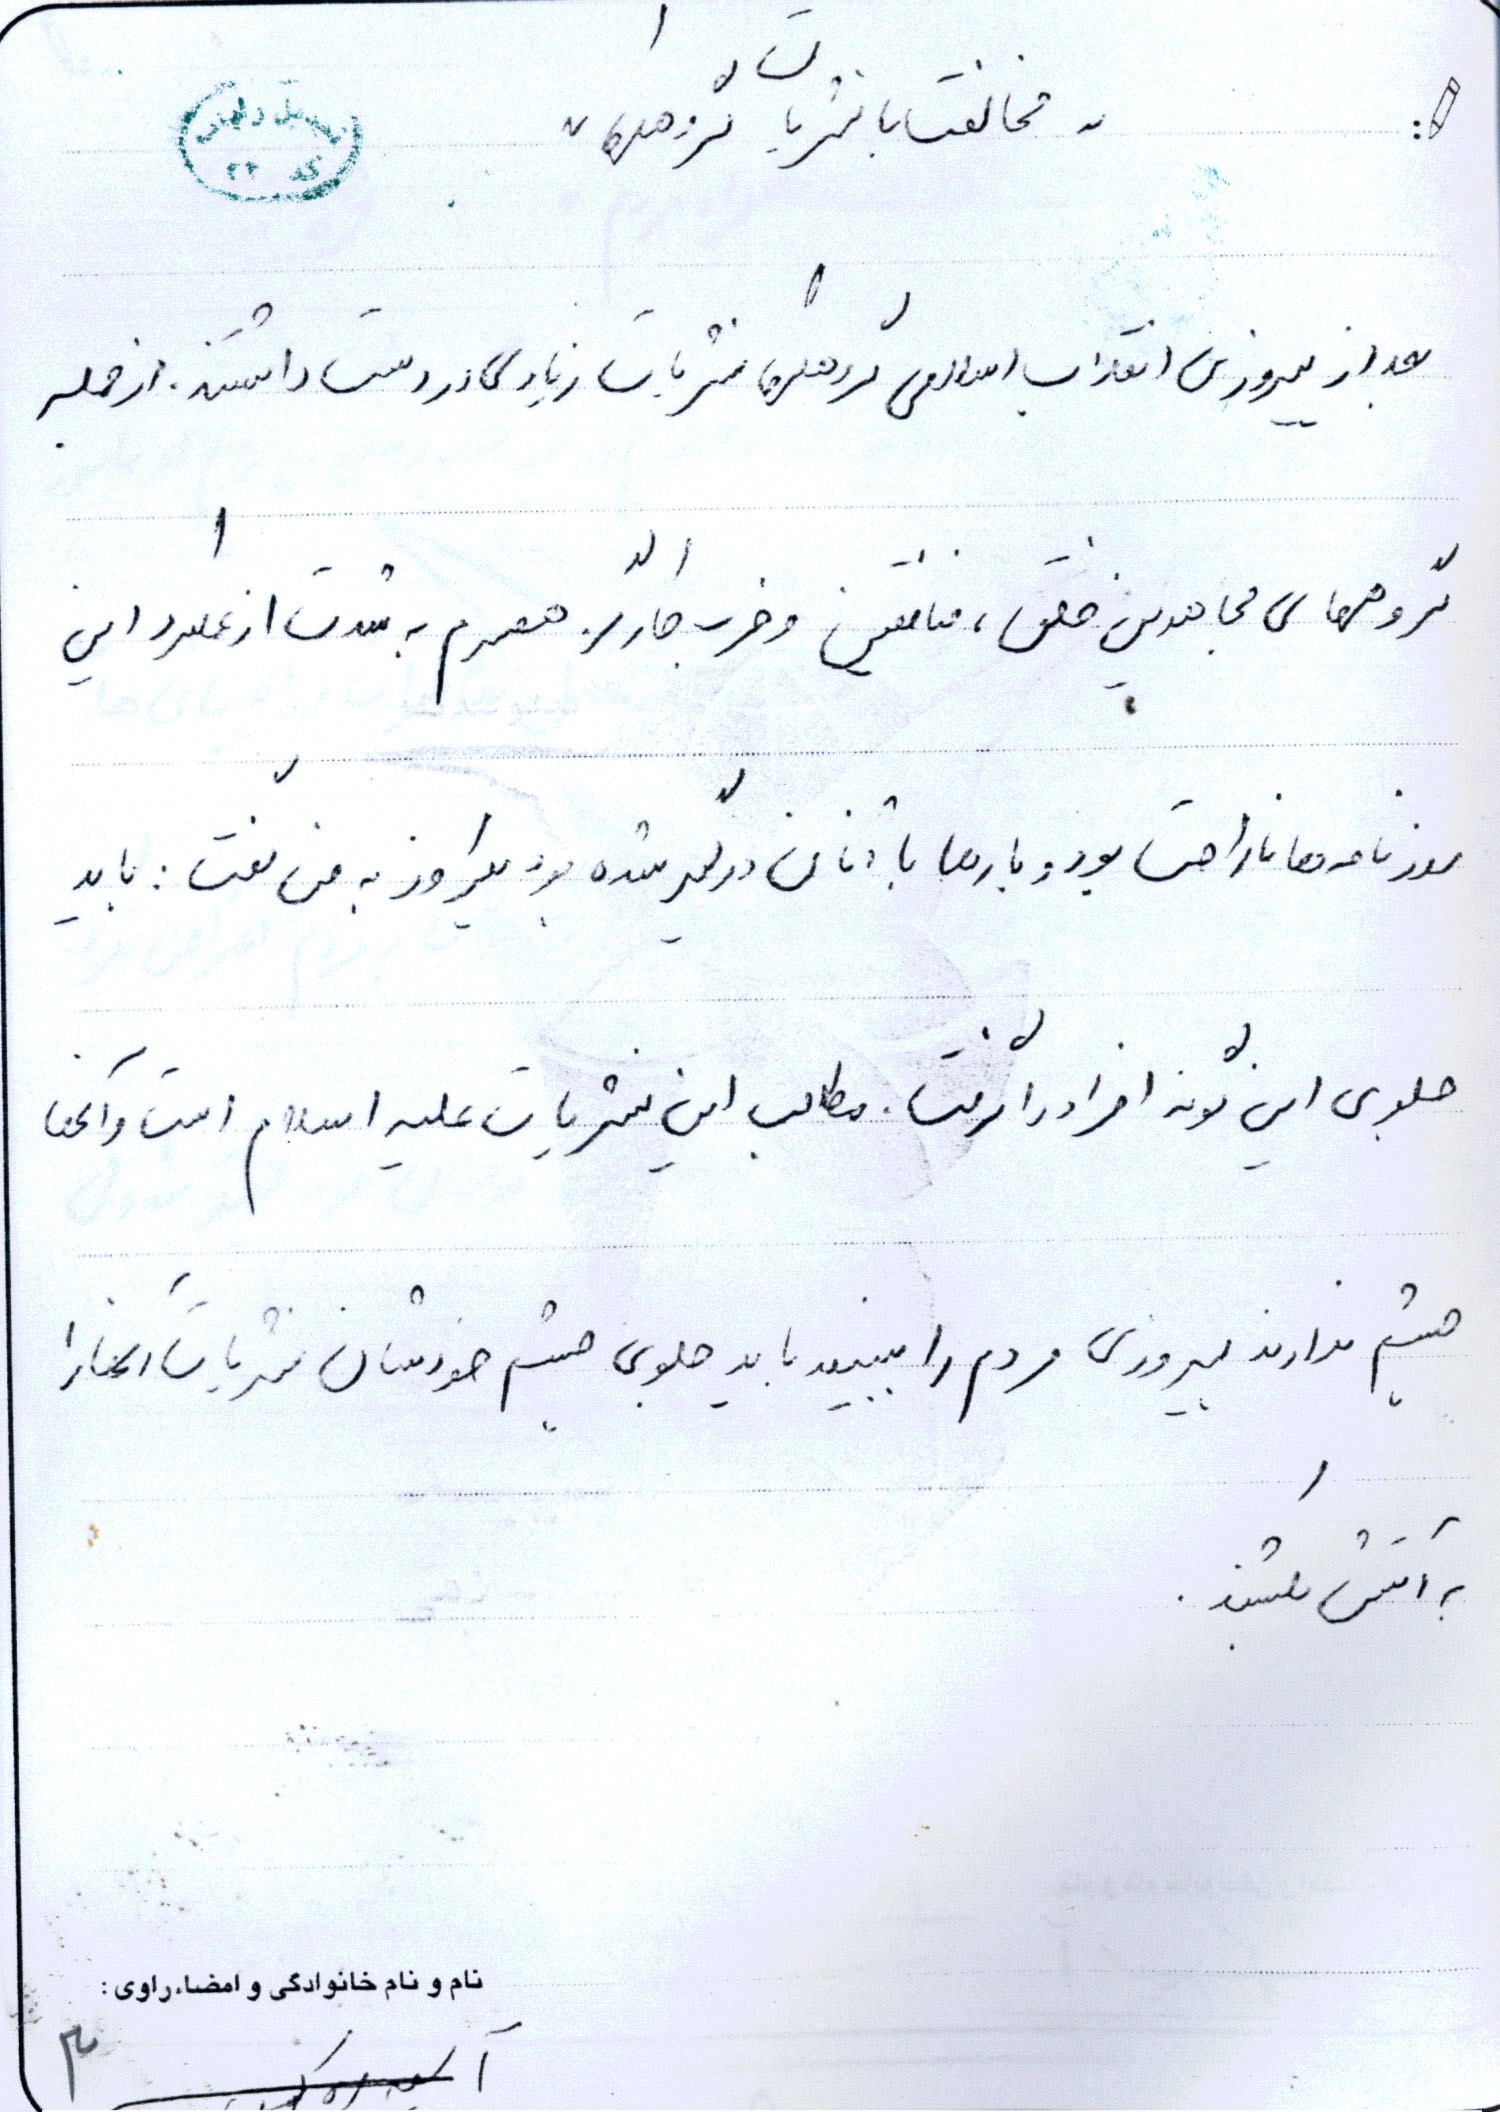 « مخالفت با نشریات گروهکها »
کد ۲۴
بعد از پیروزی انقلاب اسلامی گروهکها نشریات زیادی در دست داشتند. از جمله
گروههای مجاهدین خلق، منافقین و حزب کارگر. همسرم به شدت از عملکرد این
روزنامه‌ها ناراحت بود و بارها با آنان درگیر شده بود یکروز به من گفت: باید
جلوی این گونه افراد را گرفت. مطالب این نشریات علیه اسلام است و آنها
چشم ندارند پیروزی مردم را ببینند باید جلوی چشم خودشان نشریات آنها را
به آتش بکشند.
نام و نام خانوادگی و امضاء راوی:
۳